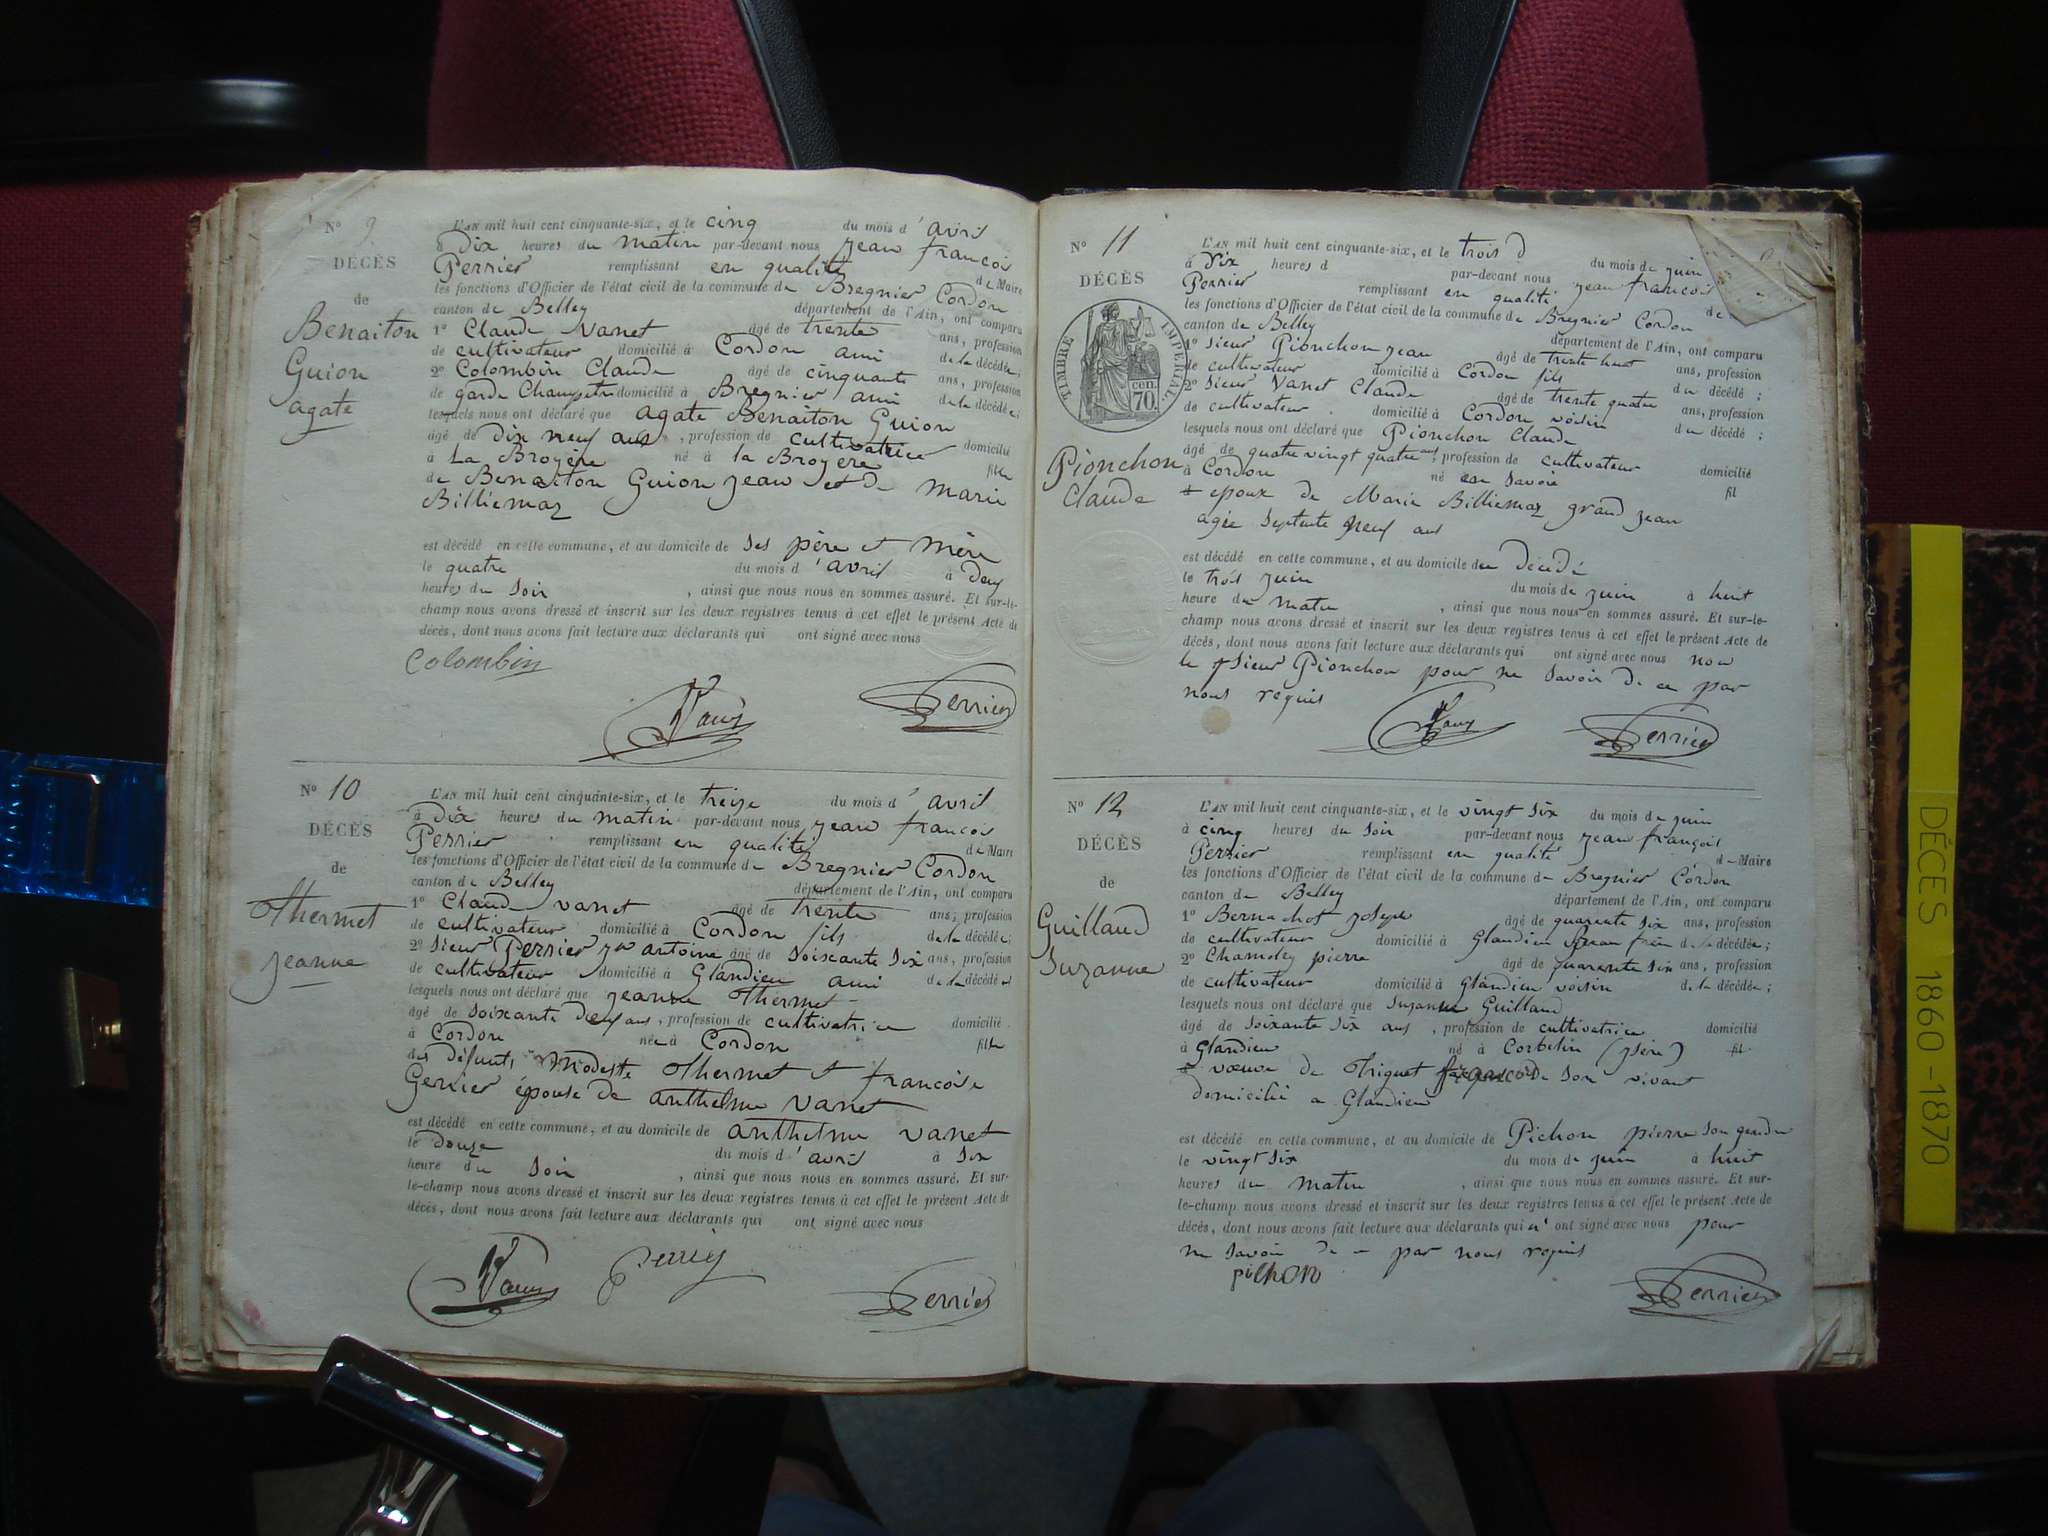 N° 9
DÉCÈS
de
Benaiton
Guion
agate
L'AN mil huit cent cinquante-six, et le cinq du mois d'avril
à Dix heures du matin par-devant nous jean françois
Perrier remplissant en qualité de Maire
les fonctions d'Officier de l'état civil de la commune de Bregnier Cordon
canton de Belley département de l'Ain, ont comparu
1° Claude Vanet âgé de trente ans, profession
de cultivateur domicilié à Cordon ami de la décédée;
2° Colombin Claude âgé de cinquante ans, profession
de garde Champetre domicilié à Bregnier ami de la décédée;
lesquels nous ont déclaré que agate Benaiton Guion
âgé de dix neuf ans, profession de cultivatrice domicilié
à La Broyère né à la Broyere fille
de Benaiton Guion jean et de marie
Billiemaz
est décédé en cette commune, et au domicile de ses père et mère
le quatre du mois d'avril à deux
heures du soir, ainsi que nous nous en sommes assuré. Et sur-le-
champ nous avons dressé et inscrit sur les deux registres tenus à cet effet le présent Acte de
décès, dont nous avons fait lecture aux déclarants qui ont signé avec nous
Colombin
Perrier
N° 10
DÉCÈS
de
Thermet
jeanne
L'AN mil huit cent cinquante-six, et le treize du mois d'avril
à Dix heures du matin par-devant nous jean françois
Perrier remplissant en qualité de Maire
les fonctions d'Officier de l'état civil de la commune de Bregnier Cordon
canton de Belley département de l'Ain, ont comparu
1° Claude Vanet âgé de trente ans, profession
de cultivateur domicilié à Cordon fils de la décédée;
2° sieur Perrier antoine âgé de soixante six ans, profession
de cultivateur domicilié à Glandieu ami de la décédée
lesquels nous ont déclaré que jeanne Thermet
âgé de soixante deux ans, profession de cultivatrice domicilié
à Cordon née à Cordon fille
des défunts Modeste Thermet et françoise
Gerrier épouse de anthelme Vanet
est décédé en cette commune, et au domicile de anthelme vanet
le douze du mois d'avril à six
heure du soir, ainsi que nous nous en sommes assuré. Et sur-
le-champ nous avons dressé et inscrit sur les deux registres tenus à cet effet le présent Acte de
décès, dont nous avons fait lecture aux déclarants qui ont signé avec nous
Perrier
N° 11
DÉCÈS
TIMBRE IMPÉRIAL
70 cen.
Pionchon
Claude
L'AN mil huit cent cinquante-six, et le trois d du mois de juin
à Dix heures d par-devant nous jean françois
Perrier remplissant en qualité de
les fonctions d'Officier de l'état civil de la commune de Bregnier Cordon
canton de Belley département de l'Ain, ont comparu
1° sieur Pionchon jean âgé de trente huit ans, profession
de cultivateur domicilié à Cordon fils du décédé;
2° sieur Vanet Claude âgé de trente quatre ans, profession
de cultivateur domicilié à Cordon voisin du décédé;
lesquels nous ont déclaré que Pionchon Claude
âgé de quatre vingt quatre ans, profession de cultivateur domicilié
à Cordon né en Savoie fil
epoux de Marie Billiemaz grand jean
agée septente neuf ans
est décédé en cette commune, et au domicile du décédé
le trois juin du mois de juin à huit
heure du matin, ainsi que nous nous en sommes assuré. Et sur-le-
champ nous avons dressé et inscrit sur les deux registres tenus à cet effet le présent Acte de
décès, dont nous avons fait lecture aux déclarants qui ont signé avec nous non
le sieur Pionchon pour ne savoir de ce par
nous requis
Perrier
N° 12
DÉCÈS
de
Guilland
Suzanne
L'AN mil huit cent cinquante-six, et le vingt six du mois de juin
à cinq heures du soir par-devant nous jean françois
Perrier remplissant en qualité d Maire
les fonctions d'Officier de l'état civil de la commune de Bregnier Cordon
canton de Belley département de l'Ain, ont comparu
1° Bernachot joseph âgé de quarente six ans, profession
de cultivateur domicilié à Glandieu frère de la décédée;
2° pierre âgé de quarente six ans, profession
de cultivateur domicilié à Glandieu voisin de la décédée;
lesquels nous ont déclaré que Suzanne Guilland
âgé de soixante six ans, profession de cultivatrice domicilié
à Glandieu né à Corbelin (Isère) fil
vœuve de Triguet françois de son vivant
domicilié a Glandieu
est décédé en cette commune, et au domicile de Pichon pierre son gendre
le vingt six du mois de juin à huit
heures du matin, ainsi que nous nous en sommes assuré. Et sur-
le-champ nous avons dressé et inscrit sur les deux registres tenus à cet effet le présent Acte de
décès, dont nous avons fait lecture aux déclarants qui n'ont signé avec nous pour
ne savoir de par nous requis
pichon
Perrier
DÉCES 1860-1870